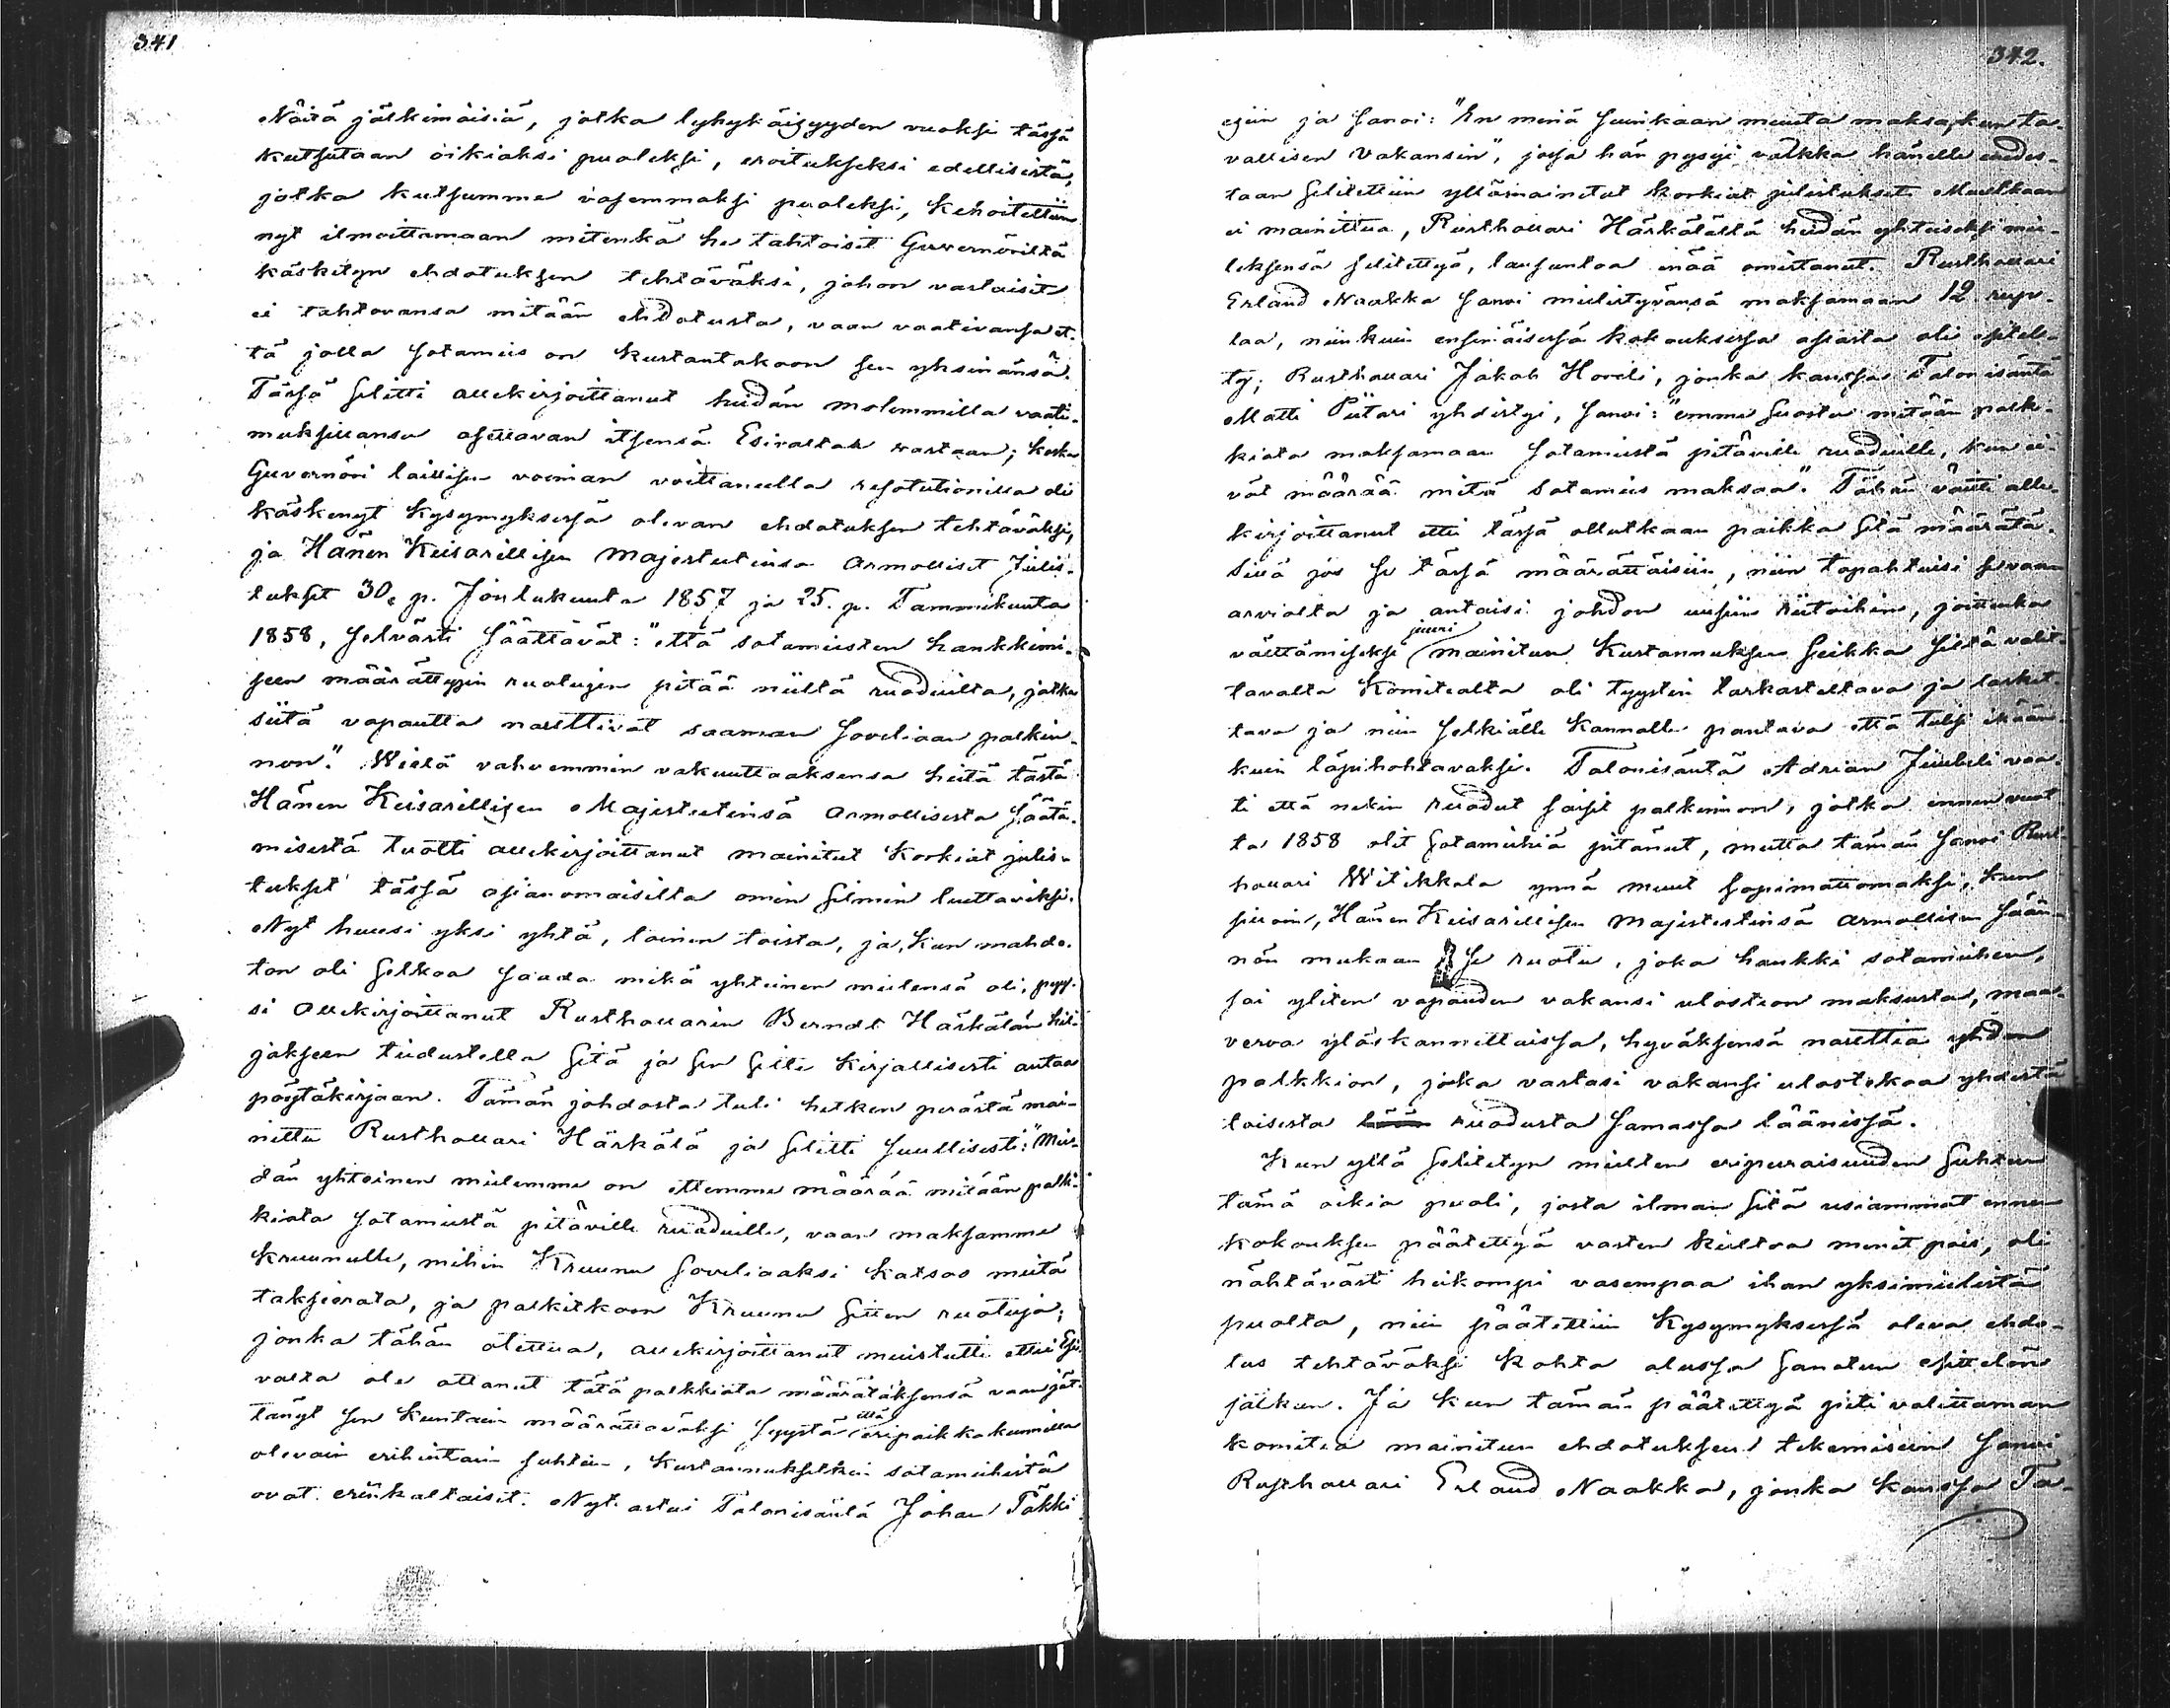 341
Näitä jälkimäisiä, jotka lyhykäisyyden vuoksi tässä
kutsutaan oikiaksi puoleksi, eroitukseksi edellisistä,
jotka kutsumme vasemmaksi puoleksi, kehoitettiin
nyt ilmoittamaan mitenkä he tahtoisit Guvernöriltä
käsketyn ehdotuksen tehtäväksi, johon vastaisit
ei tahtovansa mitään ehdotusta, vaan vaativansa et-
tä jolla sotamies on kustantakoon sen yksinänsä.
Tässä selitti allekirjoittanut heidän molemmilla vaati-
muksillansa asettavan itsensä Esivaltaa vastaan; koska
Guvernöri laillisen voiman voittaneella resolutionilla oli
käskenyt kysymyksessä olevan ehdotuksen tehtäväksi,
ja Hänen Keisarillisen Majestetinsa Armolliset Julis-
tukset 30. p. Joulukuuta 1857 ja 25. p. Tammikuuta
1858, selvästi säättävät: "että sotamiesten hankkimi-
seen määrättyin ruotujen pitää niiltä ruaduilta, jotka
siitä vapautta nauttivat saaman soveliaan palkin-
non." Wielä vahvemmin vakuuttaaksensa heitä tästä
Hänen Keisarillisen Majestetinsä Armollisesta säätä-
misestä tuotti allekirjoittanut mainitut korkiat julis-
tukset tässä asianomaisilta omin silmin luettaviksi.
Nyt huusi yksi yhtä, toinen toista, ja, kun mahdo-
ton oli selkoa saada mikä yhteinen mielensä oli, pyy-
si allekirjoittanut Rusthollarin Berndt Härkälän hil-
jakseen tiedustella sitä ja sen sitte kirjallisesti antaa
pöytäkirjaan. Tämän johdosta tuli hetken perästä mai-
nittu Rusthollari Härkälä ja selitti suullisesti: "Mei-
dän yhteinen mielemme on ettemme määrää mitään palk-
kiota sotamiestä pitäville ruaduille, vaan maksamme
kruunulle, mihin Kruunu soveliaaksi katsoo meitä
takseerata, ja palkitkoon Kruunu sitten ruotuja;
jonka tähän otettua, allekirjoittanut muistutti ettei Esi-
valta ole ottanut tätä palkkiota määrätäksensä vaan jät-
tänyt sen kuntain määrättäväksi syystä että eripaikkakunnilla
olevain erihintain suhteen, kustannuksetkin sotamiehistä
ovat erinkaltaisit. Nyt astui Talonisäntä Johan Täkki
342.
esiin ja sanoi: "En minä suinkaan muuta maksa, kun ta-
vallisen Vakansin", jossa hän pysyi vaikka hänelle uudes-
taan selitettiin yllämainitut korkiat julistukset. Muutkaan
ei mainittua, Rusthollari Härkälältä heidän yhteiseksi mie-
leksensä selitettyä, lausuntoa enää omistanut. Rusthollari
Erland Naakka sanoi mielistyvänsä maksamaan 12 rup-
laa, niinkuin ensimäisessä kokouksessa asiasta oli esitel-
ty; Rusthollari Jakob Hoveli, jonka kanssa Talonisäntä
Matti Piitari yhdistyi, sanoi: "emme suostu mitään palk-
kiota maksamaan sotamiestä pitäville ruaduille, kun ei-
vät määrää mitä sotamies maksaa." Tähän väitti alle-
kirjoittanut ettei tässä ollutkaan paikka sitä määrätä.
Sillä jos se tässä määrättäisiin, niin tapahtuisi se vaan
arviolta ja antaisi johdon uusiin riitoihin, joittenka
välttämiseksi juuri mainitun kustannuksen seikka siltä valit-
tavalta Komitealta oli tyystin tarkasteltava ja laskit-
tava ja niin selkiälle kannalle pantava että tulisi ikään-
kuin läpihohtavaksi. Talonisäntä Adrian Juubeli vaa-
ti että nekin ruadut saisit palkinnon, jotka ennen vuot-
ta 1858 olit sotamiehiä pitänyt, mutta tämän sanoi Rust-
hollari Witikkala ynnä muut sopimattomaksi, kun
silloin, Hänen Keisarillisen Majestetinsä armollisen sään-
nön mukaan se ruotu, joka hankki sotamiehen,
sai yliten vapauden vakansi ulosteon maksusta, maa-
veroa yläskannettaissa, hyväksensä nauttia yhden
palkkion, joka vastasi vakansi ulostekoa yhdestä
toisesta ruadusta samassa läänissä.
Kun yllä selitetyn mielten eripuraisuuden suhteen
tämä oikia puoli, josta ilman sitä usiammat ennen
kokouksen päätettyä vasten kieltoa menit pois, oli
nähtävästi heikompi vasempaa ihan yksimielistä
puolta, niin päätettiin kysymyksessä oleva ehdo-
tus tehtäväksi kohta alussa sanotun esittelön
jälkeen. Ja kun tämän päätettyä piti valittaman
komitea mainitun ehdotuksen tekemiseen sanoi
Rusthollari Erland Naakka, jonka kanssa Ta-